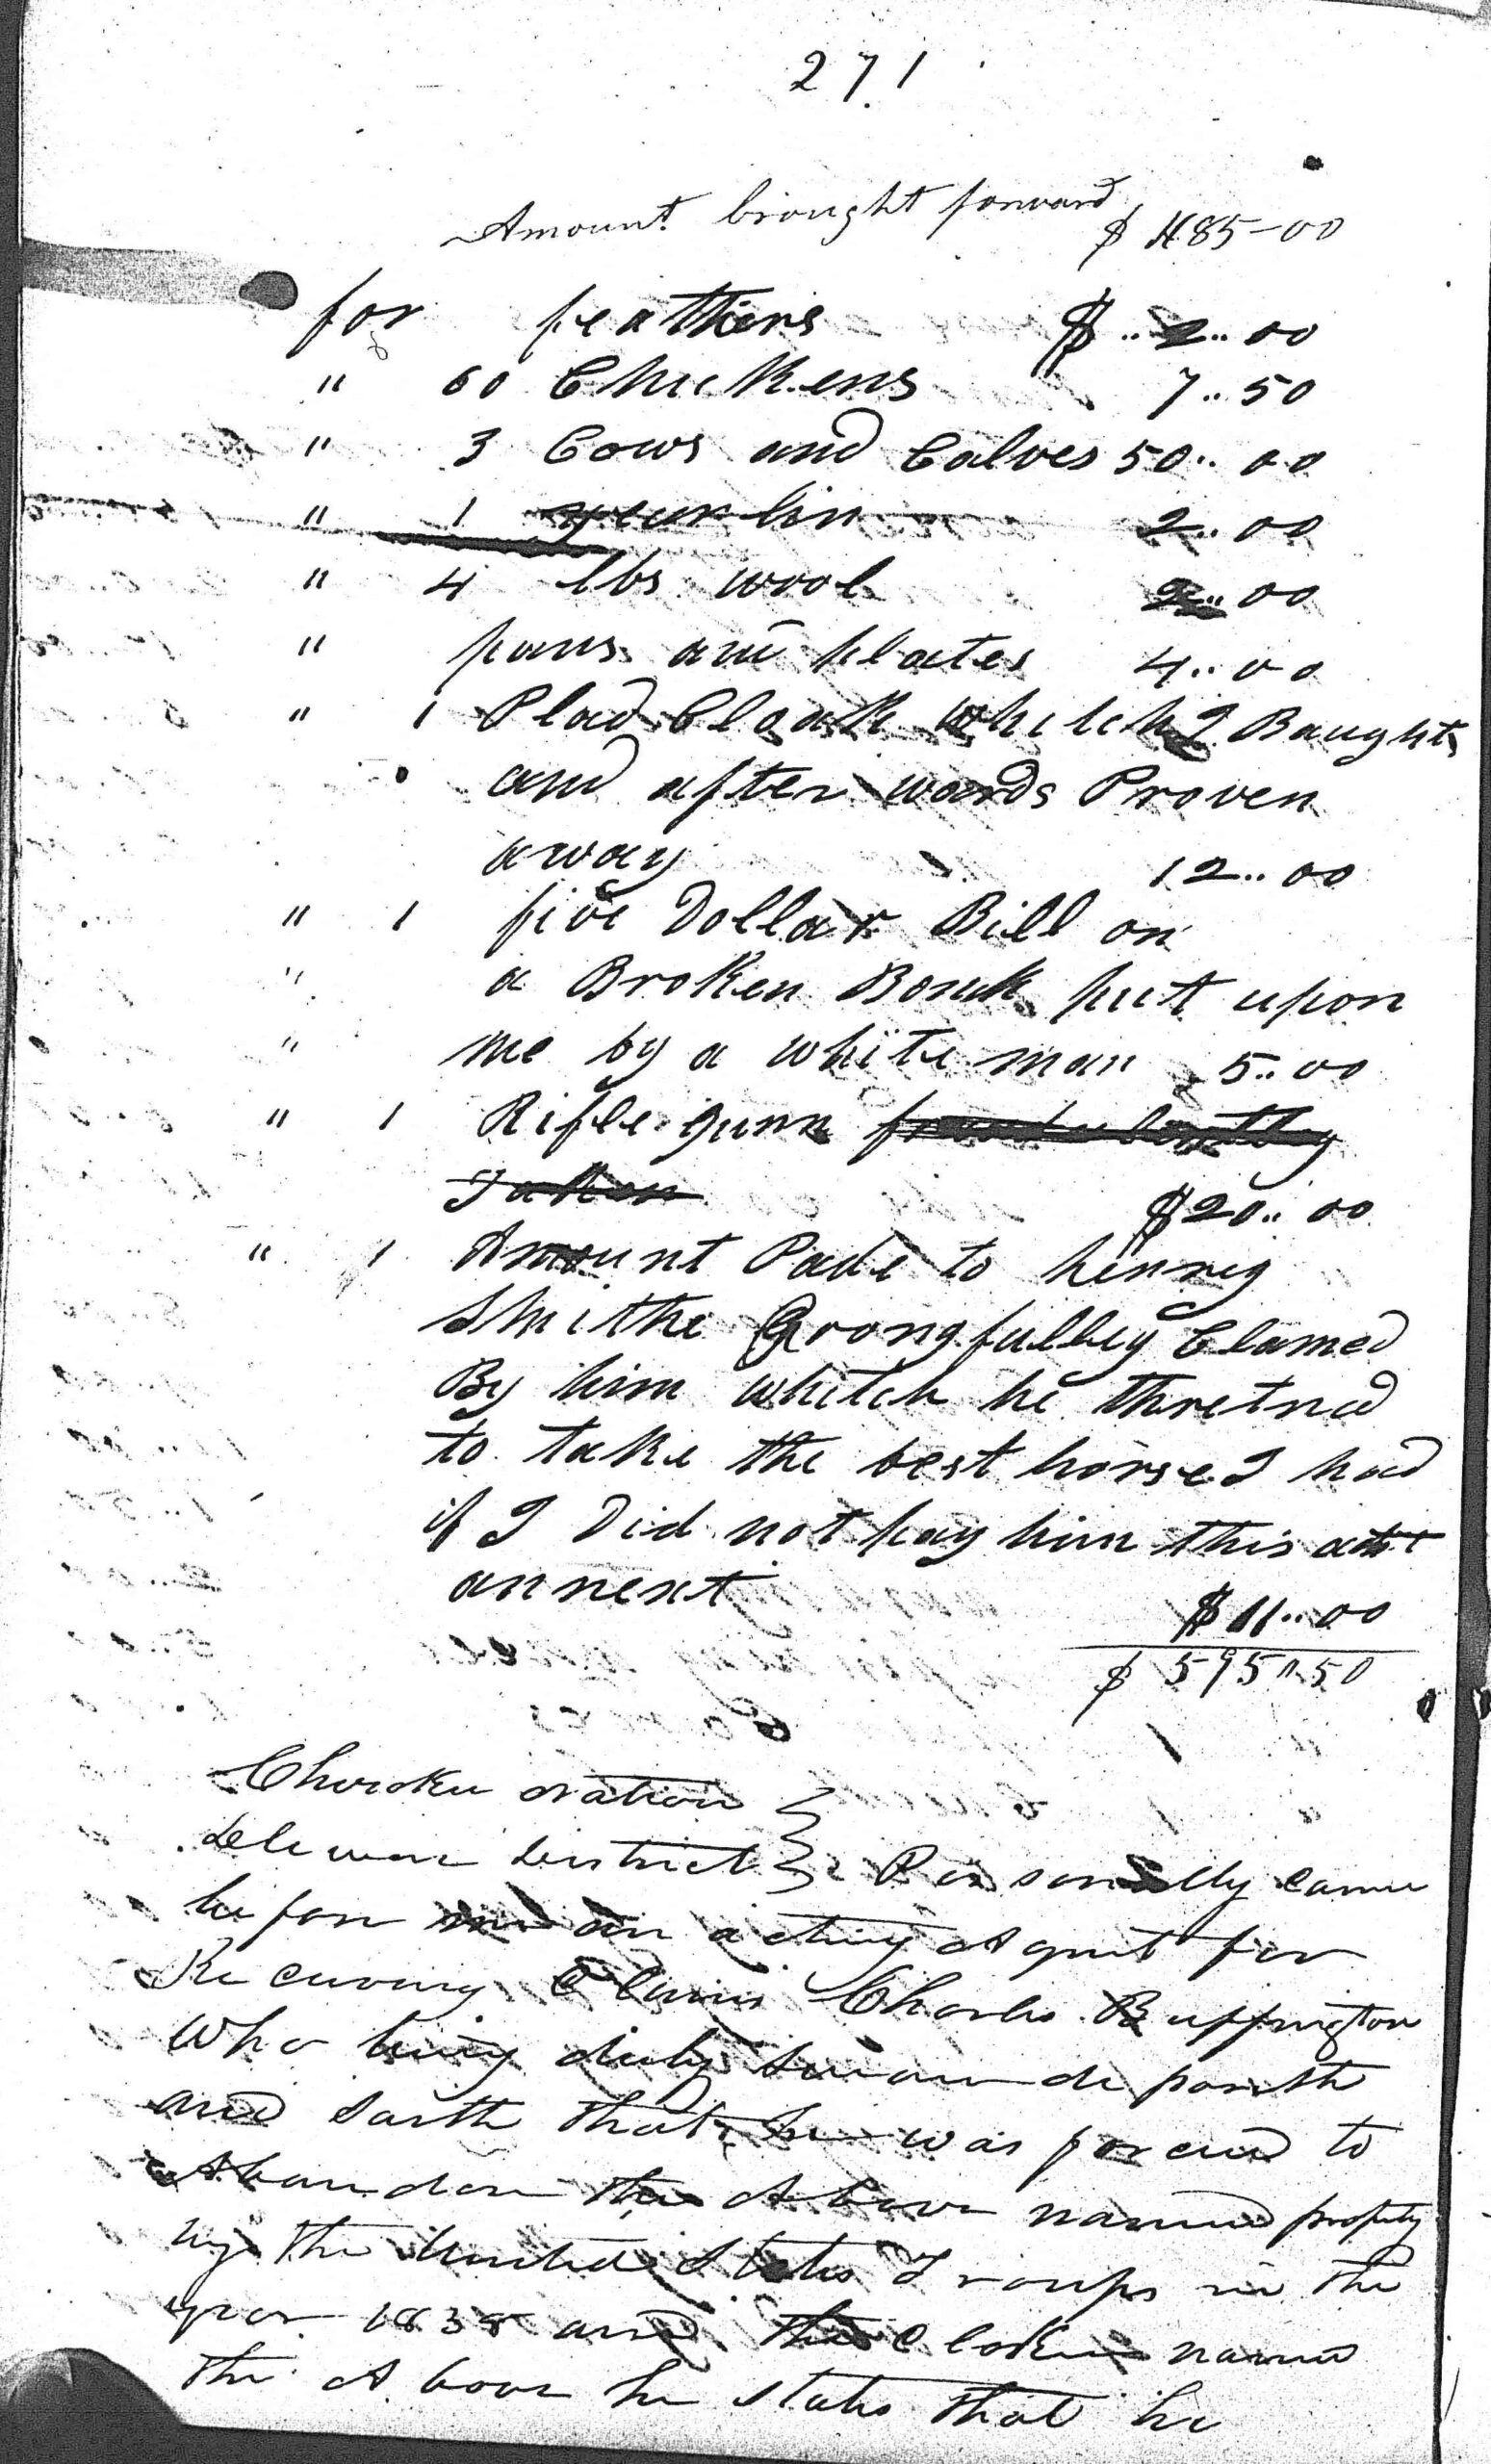 271
Amount brought forward $ 485-00
for feathers $ .. 2.. 00
" 60 Chickens 7.. 50
" 3 Cows and Calves 50.. 00
" 1 yearlin 2.. 00
" 4 lbs wool 2.. 00
" pans and plates 4.. 00
" 1 Plad Cloak whitch I Baught
and after wards Proven
away 12.. 00
" 1 five Dollar Bill on
" a Broken Bank put upon
" me by a white man 5.. 00
" 1 Rifle gunn fraudulently
Taken $20.. 00
" 1 Amount Pade to henrey
Smithe Grongfulley Clamed
By him whitch he thretned
to take the best horse I had
if I Did not pay him this amt
annext $ 11.. 00
$ 595"50
Cherokee Nation
Deleware District } Personally came
before me an acting Agent for
Receiving Claims Charles Buffington
Who being duly sworn deposeth
and saith that he was forced to
Abandon the Above named property
by the United States Troops in the
year 1838 and the Cloke named
the Above he states that he